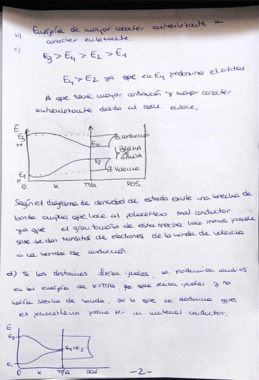 b) Energía de mayor carácter antienlazante a
carácter enlazante.
c)
E3 > E4 > E2 > E1
E4 > E2 ya que en E4 predomina el
A que tiene mayor contribución y mayor carácter
antienlazante debido al doble enlace.
E
E3
E4
E2
E1
B conducción
BRECHA
BANDA
B Valencia
0 k π/a DOS
Según el diagrama de densidad de estado existe una brecha de
banda que hace al poliacetileno mal conductor
ya que el gran tamaño de esta brecha hace menos posible
que se den tránsitos de electrones de la banda de valencia
a la banda de conducción.
d) Si las distancias fueran iguales, se
en la energía de k=π/a, ya que serían iguales y no
habría brecha de banda, por lo que se deduciría que
el poliacetileno podría ser un material conductor.
E
E3
E4=E2
E1
0 k π/a DOS
-2-